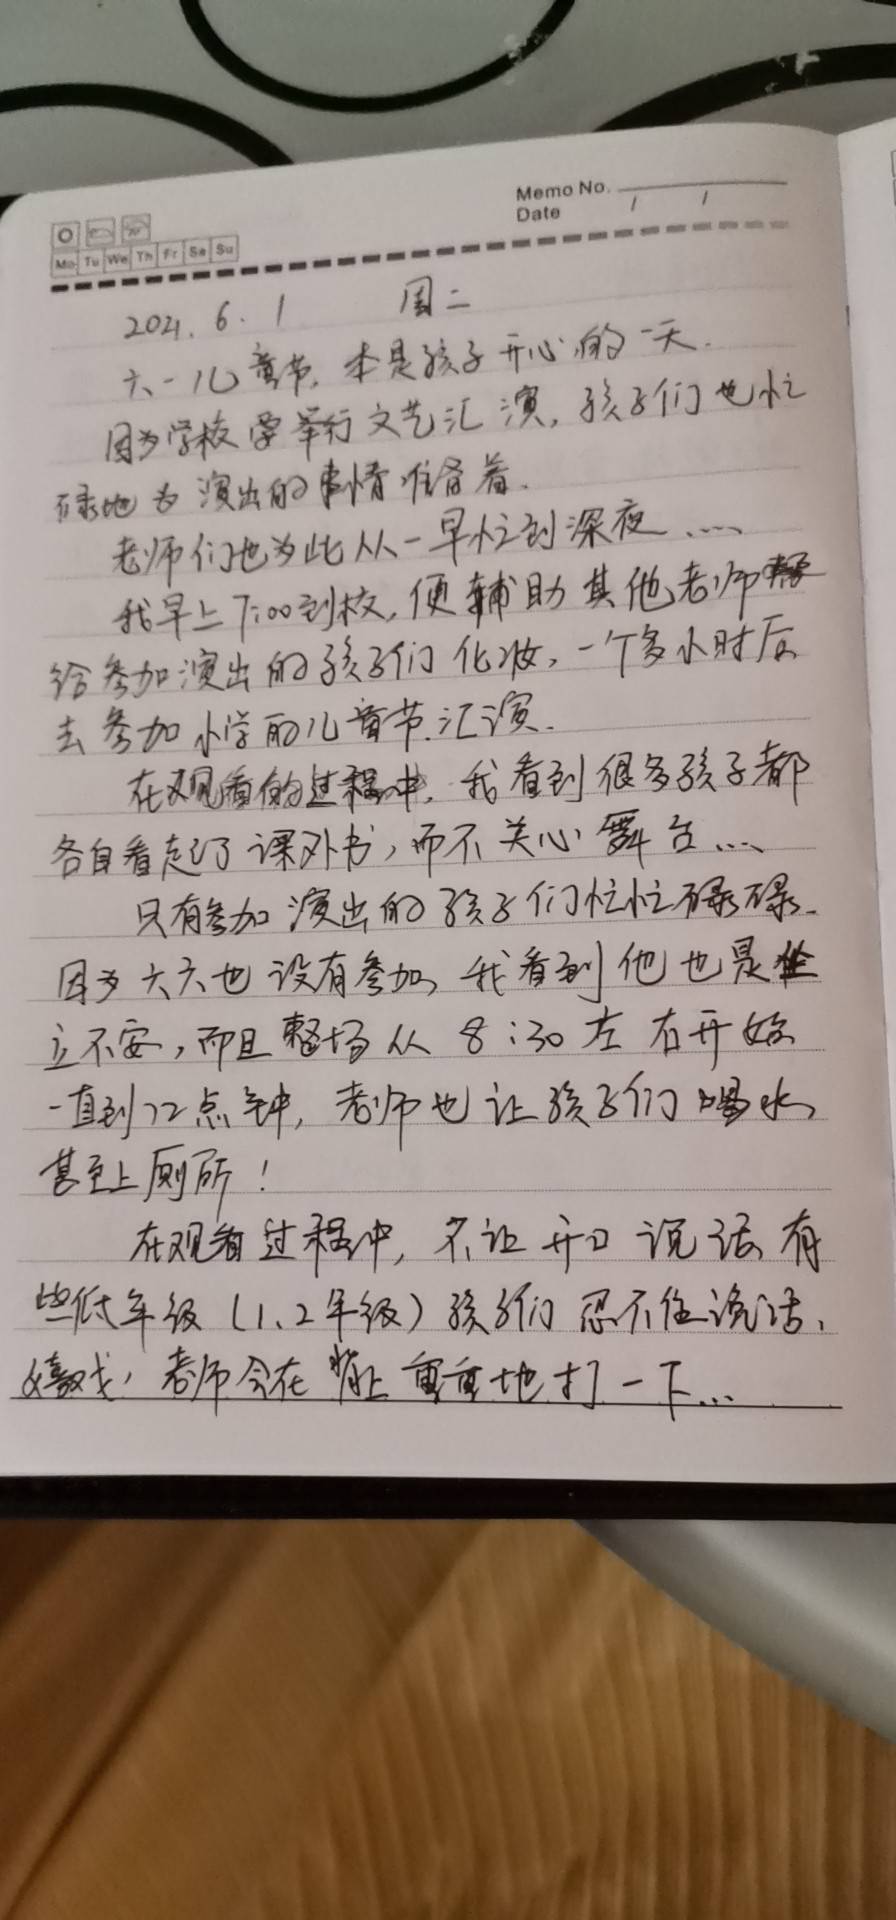 Memo No.
Date / /
Mo Tu We Th Fr Sa Su
2021.6.1 周二
六一儿童节,本是孩子开心的一天.
因为学校要举行文艺汇演,孩子们也忙
碌地为演出的事情准备着.
老师们也为此从一早忙到深夜....
我早上7:00到校,便辅助其他老师
给参加演出的孩子们化妆,一个多小时后
去参加小学的儿童节汇演.
在观看的过程中,我看到很多孩子都
各自看起了课外书,而不关心舞台...
只有参加演出的孩子们忙忙碌碌.
因为六六也没有参加,我看到他也是坐
立不安,而且整场从8:30左右开始
一直到12点钟,老师也让孩子们喝水,
甚至上厕所!
在观看过程中,不让开口说话,有
些低年级(1、2年级)孩子们忍不住说话、
嬉戏,老师会在背上重重地打一下...